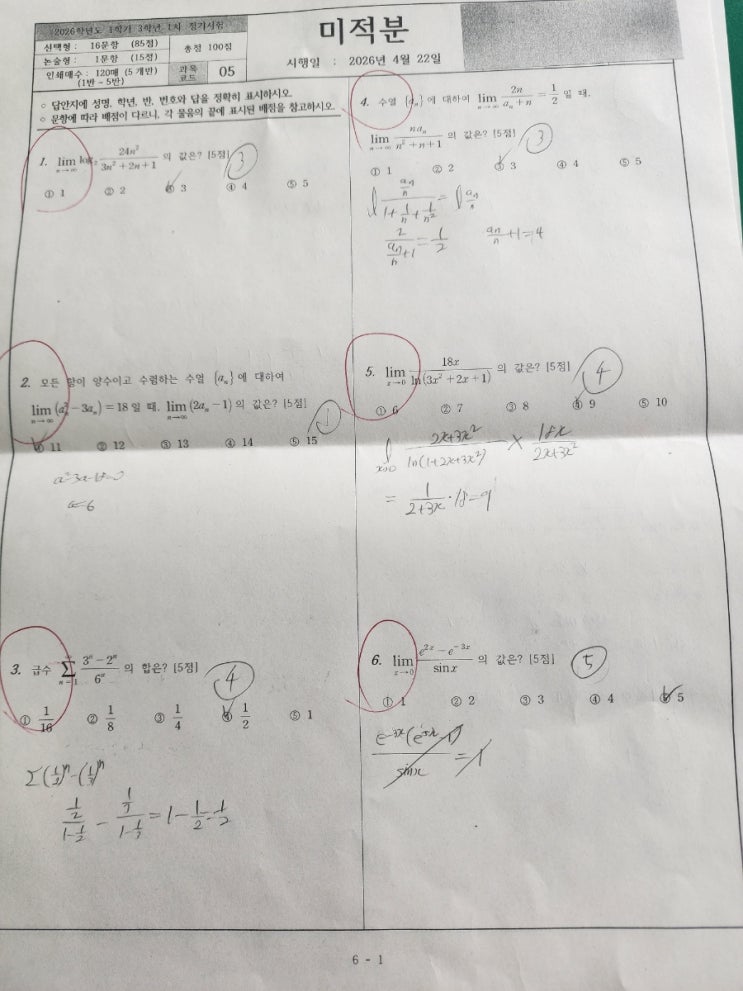 2026학년도 1학기 3학년 1차 정기시험
선택형 : 16문항 (85점)
논술형 : 1문항 (15점)
인쇄매수 : 120매 (5개반)
(1반 ~ 5반)
총점 100점
과목
코드
05
미적분
시행일 : 2026년 4월 22일
○ 답안지에 성명, 학년, 반, 번호와 답을 정확히 표시하시오.
○ 문항에 따라 배점이 다르니, 각 물음의 끝에 표시된 배점을 참고하시오.
1. lim n→∞ log₂ 24n²/(3n²+2n+1) 의 값은? [5점]
③
① 1 ② 2 ③ 3 ④ 4 ⑤ 5
2. 모든 항이 양수이고 수렴하는 수열 {aₙ}에 대하여
lim n→∞ (aₙ² − 3aₙ) = 18 일 때, lim n→∞ (2aₙ − 1)의 값은? [5점]
①
① 11 ② 12 ③ 13 ④ 14 ⑤ 15
a²-3a-18=0
a=6
3. 급수 ∑ n=1 ∞ (3ⁿ − 2ⁿ)/6ⁿ 의 합은? [5점]
④
① 1/16 ② 1/8 ③ 1/4 ④ 1/2 ⑤ 1
Σ(1/2)ⁿ-(1/3)ⁿ
(1/2)/(1-1/2) - (1/3)/(1-1/3) = 1 - 1/2 = 1/2
4. 수열 {aₙ}에 대하여 lim n→∞ 2n/(aₙ+n) = 1/2 일 때,
lim n→∞ naₙ/(n²+n+1) 의 값은? [5점]
③
① 1 ② 2 ③ 3 ④ 4 ⑤ 5
(aₙ/n)/(1+1/n+1/n²) = aₙ/n
2/(aₙ/n+1) = 1/2 aₙ/n+1=4
5. lim x→0 18x/ln(3x²+2x+1) 의 값은? [5점]
④
① 6 ② 7 ③ 8 ④ 9 ⑤ 10
x→0 (2x+3x²)/ln(1+2x+3x²) × 18x/(2x+3x²)
= 1/(2+3x) · 18 = 9
6. lim x→0 (e²ˣ − e⁻³ˣ)/sin x 의 값은? [5점]
⑤
① 1 ② 2 ③ 3 ④ 4 ⑤ 5
e⁻³ˣ(e⁵ˣ-1)/sinx = 1
6 - 1